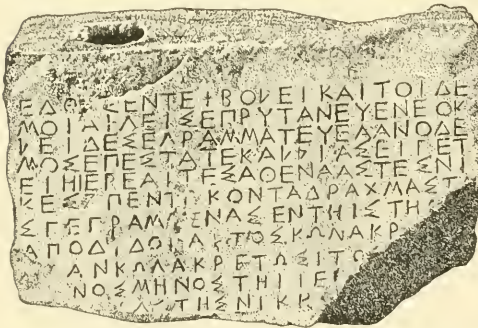 ΕΔΟΧΣΕΝΤΕΙΒΟΛΕΙΚΑΙΤΟΙΔΕ
ΜΟΙΑΙΓΕΙΣΕΠΡΥΤΑΝΕΥΕΝΕΟΚ
ΛΕΙΔΕΣΕΓΡΑΜΜΑΤΕΥΕΑΓΝΟΔΕ
ΜΟΣΕΠΕΣΤΑΤΕΚΑΛΛΙΑΣΕΙΠΕΤ
ΕΙΗΙΕΡΕΑΙΤΕΣΑΘΕΝΑΑΣΤΕΣΝΙ
ΚΕΣ ΠΕΝΤΗΚΟΝΤΑΔΡΑΧΜΑΣΤ
ΣΓΕΓΡΑΜΜΕΝΑΣΕΝΤΗΙΣΤΗ
ΑΠΟΔΙΔΟΝΑΙΤΟΣΚΩΛΑΚΡ
ΑΝΚΩΛΑΚΡΕΤΩΣΙΤΟ
ΝΟΣΜΗΝΟΣΤΗΙΙΕ
ΤΗΣΝΙΚ